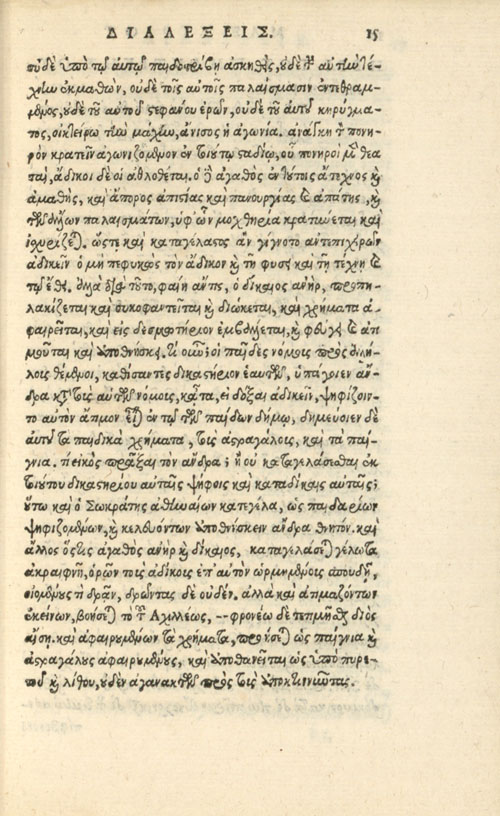 ΔΙΑΛΕΞΕΙΣ. 15
οὐδὲ ὑπὸ τῷ αὐτῷ παιδοτρίβῃ ἀσκηθεὶς, οὐδὲ τὴν αὐτὴν τέ-
χνην ἐκμαθὼν, οὐδὲ τοῖς αὐτοῖς παλαίσμασιν ἐντεθραμ-
μένος, οὐδὲ τοῦ αὐτοῦ στεφάνου ἐρῶν, οὐδὲ τοῦ αὐτοῦ κηρύγμα-
τος, οἰκτείρω τὴν μάχην, ἄνισος ἡ ἀγωνία. ἀνάγκη τὸν πονη-
ρὸν κρατεῖν ἀγωνιζόμενον ἐν τοιούτῳ σταδίῳ, οὗ πονηροὶ μὲν θεα
ταὶ, ἄδικοι δὲ οἱ ἀθλοθέται. ὁ δὲ ἀγαθὸς ἐν τούτοις ἄτεχνος καὶ
ἀμαθὴς, καὶ ἄπορος ἀπιστίας καὶ πανουργίας καὶ ἀπάτης, καὶ
τῶν ἄλλων παλαισμάτων, ὑφ' ὧν μοχθηρία κρατύνεται καὶ
ἰσχυρίζεται. ὥστε καὶ καταγέλαστος ἂν γίγνοιτο ἀντεπιχειρῶν
ἀδικεῖν ὁ μὴ πεφυκὼς τὸν ἄδικον καὶ τῇ φύσει καὶ τῇ τέχνῃ καὶ
τῷ ἔθει, ἀλλὰ διὰ τοῦτο, φαίη ἄν τις, ὁ δίκαιος ἀνὴρ, προπη-
λακίζεται καὶ συκοφαντεῖται καὶ διώκεται, καὶ χρήματα ἀ-
φαιρεῖται, καὶ εἰς δεσμωτήριον ἐμβάλλεται, καὶ φεύγει καὶ ἀτι
μοῦται καὶ ἀποθνήσκει. τί οὖν εἰ οἱ παῖδες νόμοις πρὸς ἀλλή-
λους θέμενοι, καθίσαντες δικαστήριον ἑαυτῶν, ὑπάγοιεν ἄν-
δρα κατὰ τοὺς αὐτῶν νόμοις, κᾆτα, εἰ δόξαι ἀδικεῖν, ψηφίζοιν-
το αὐτὸν ἄτιμον εἶναι ἐν τῷ τῶν παίδων δήμῳ, δημεύοιεν δὲ
αὐτοῦ τὰ παιδικὰ χρήματα, τοὺς ἀστραγάλους, καὶ τὰ παί-
γνια. τί εἰκὸς πρᾶξαι τὸν ἄνδρα; ἢ οὐ καταγελάσεσθαι ἐκ
τοιούτου δικαστηρίου αὐταῖς ψήφοις καὶ καταδίκαις αὐταῖς;
οὕτω καὶ ὁ Σωκράτης ἀθηναίων κατεγέλα, ὡς παιδαρίων
ψηφιζομένων, καὶ κελευόντων ἀποθνήσκειν ἄνδρα θνητόν. καὶ
ἄλλος ὅστις ἀγαθὸς ἀνὴρ καὶ δίκαιος, καταγελάσεται γέλωτα
ἀκραιφνῆ, ὁρῶν τοὺς ἀδίκους ἐπ' αὐτὸν ὡρμημένους σπουδῇ,
οἰομένους τὶ δρᾶν, δρῶντας δὲ οὐδέν. ἀλλὰ καὶ ἀτιμαζόντων
ἐκείνων, βοήσεται τὸ τοῦ Ἀχιλλέως, -- φρονέω δὲ τετιμῆσθαι διὸς
αἴσῃ. καὶ ἀφαιρουμένων τὰ χρήματα, προήσεται ὡς παίγνια καὶ
ἀστραγάλους ἀφαιρουμένους, καὶ ἀποθανεῖται ὡς ὑπὸ πυρε-
τοῦ καὶ λίθου, οὐδὲν ἀγανακτῶν πρὸς τοὺς ἀποκτιννύντας.